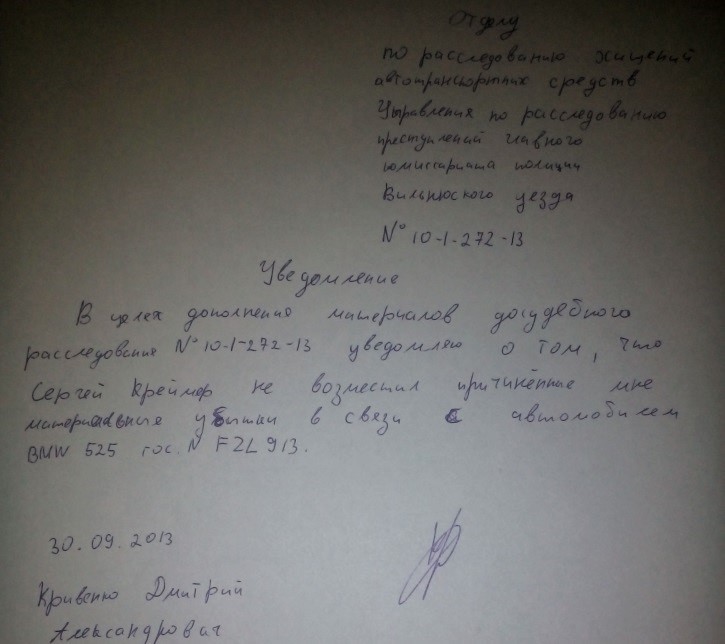 Отделу
по расследованию хищений
автотранспортных средств
Управления по расследованию
преступлений главного
комиссариата полиции
Вильнюсского уезда
N° 10-1-272-13
Уведомление
В целях дополнения материалов досудебного
расследования N° 10-1-272-13 уведомляю о том, что
Сергей Креймер не возместил причинённые мне
материальные убытки в связи с автомобилем
BMW 525 гос. N FZL 913.
30.09.2013
Кривенко Дмитрий
Александрович